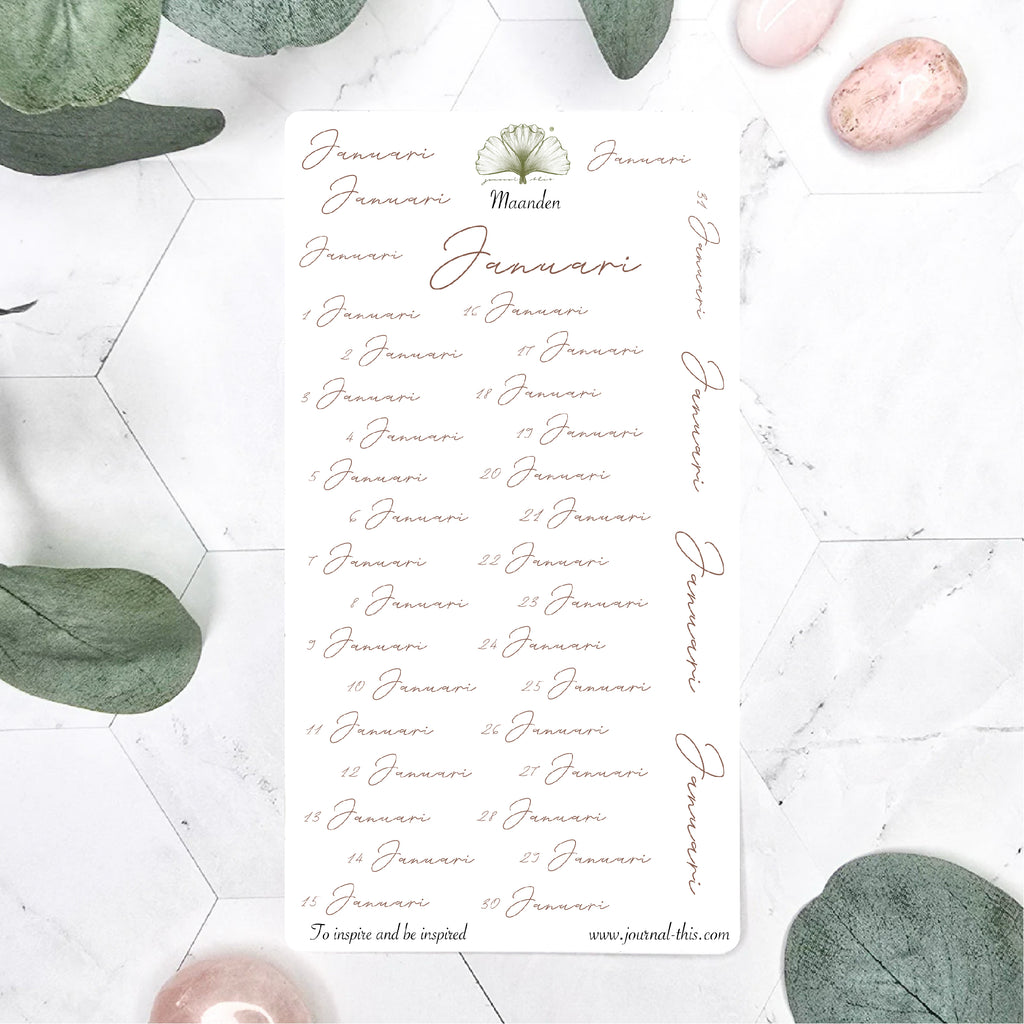 Januari
Januari
journal this
Maanden
Januari
Januari
Januari
1 Januari
16 Januari
2 Januari
17 Januari
3 Januari
18 Januari
4 Januari
19 Januari
5 Januari
20 Januari
6 Januari
21 Januari
7 Januari
22 Januari
8 Januari
23 Januari
9 Januari
24 Januari
10 Januari
25 Januari
11 Januari
26 Januari
12 Januari
27 Januari
13 Januari
28 Januari
14 Januari
29 Januari
15 Januari
30 Januari
31 Januari
Januari
Januari
Januari
To inspire and be inspired
www.journal-this.com